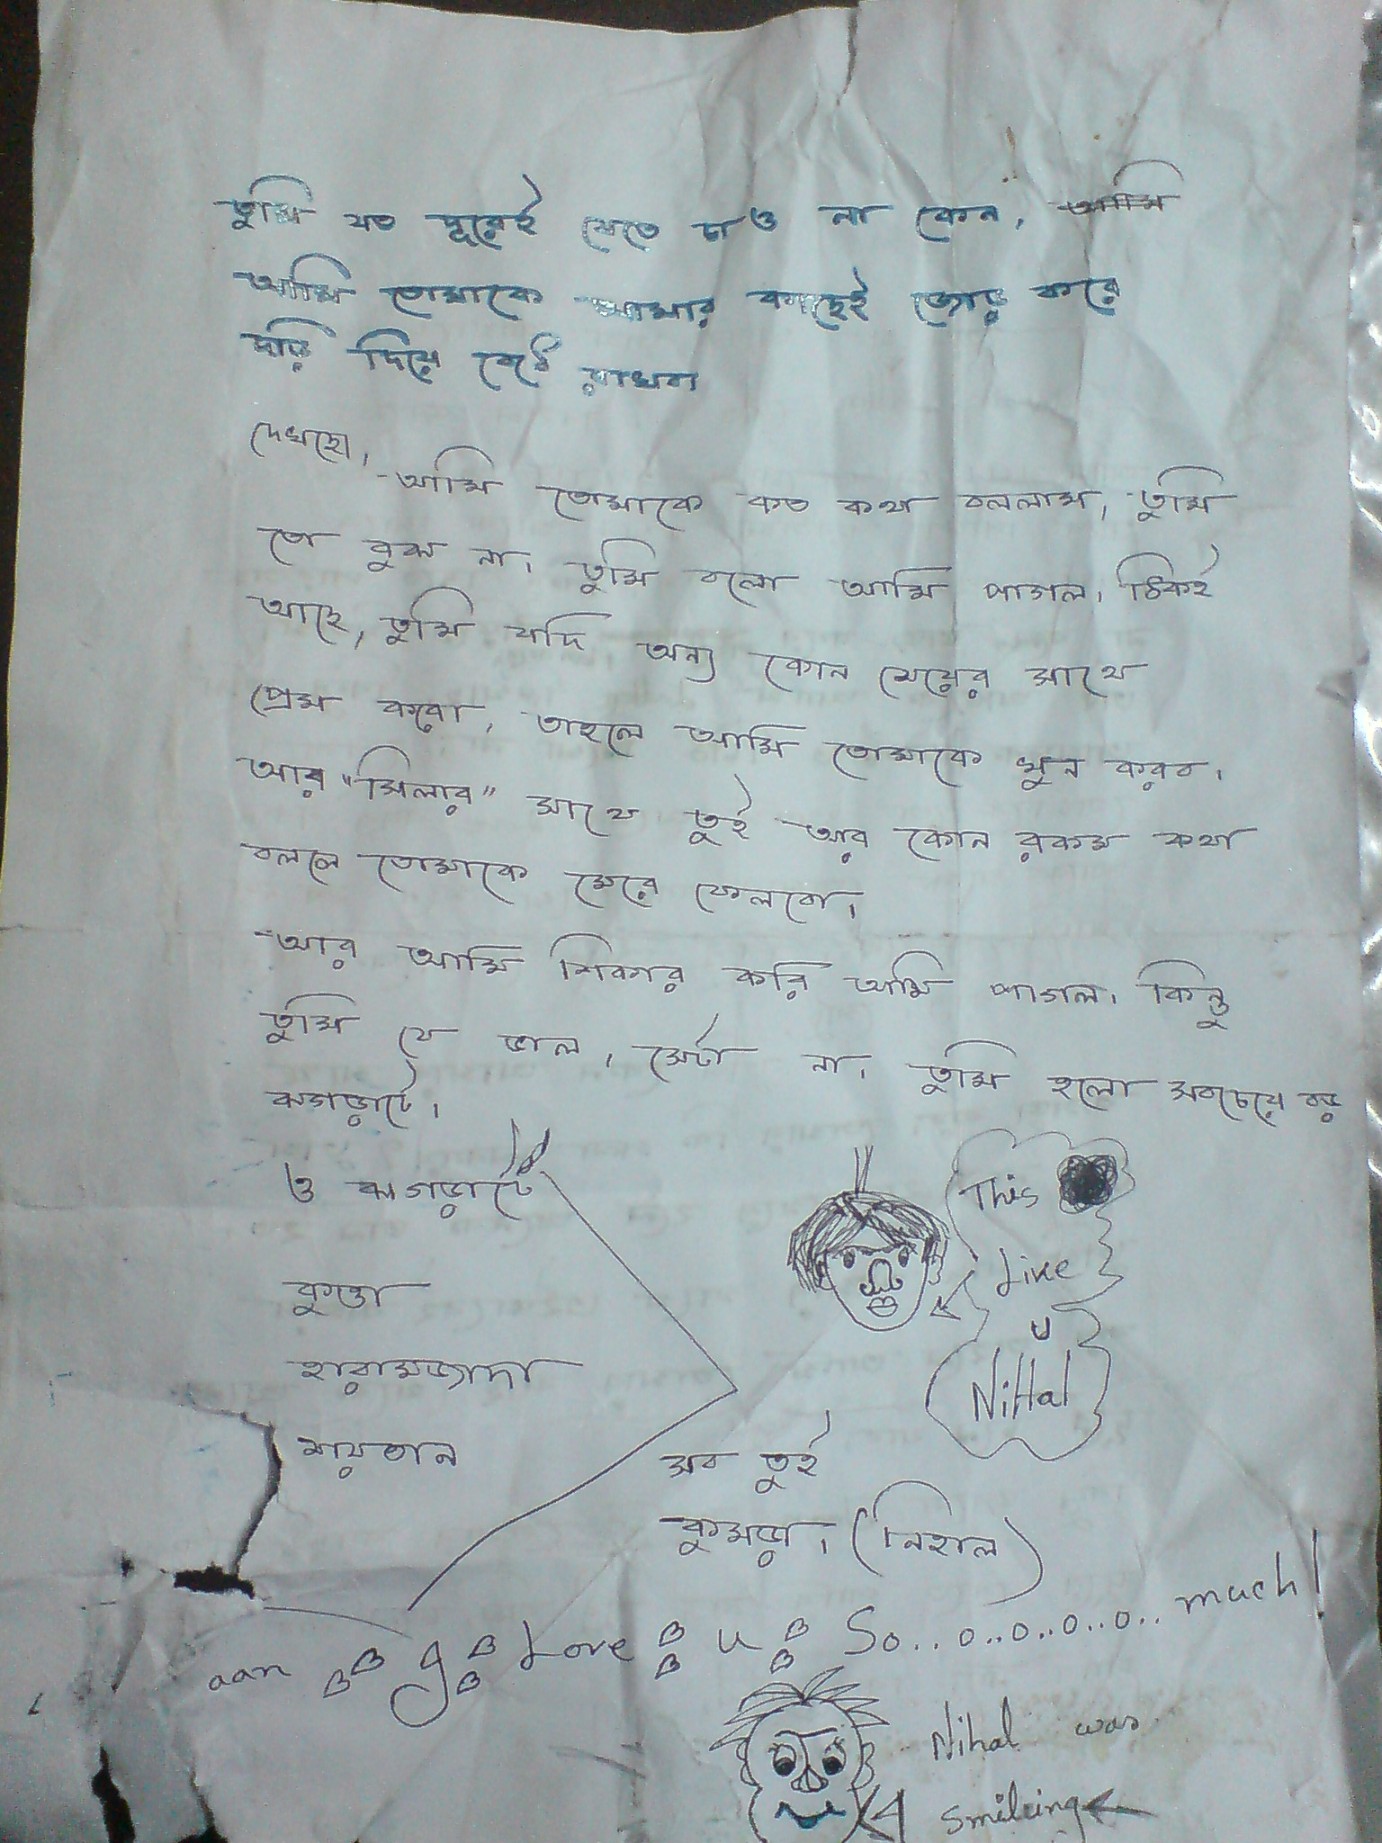 তুমি যত দূরেই যেতে চাও না কেন, আমি
আমি তোমাকে আমার কাছেই জোড় করে
দড়ি দিয়ে বেঁধে রাখব।
দেখছো,
আমি তোমাকে কত কথা বললাম, তুমি
তো বুঝ না। তুমি বলো আমি পাগল। ঠিকই
আছে, তুমি যদি অন্য কোন মেয়ের সাথে
প্রেম করো, তাহলে আমি তোমাকে খুন করব।
আর "মিলার" সাথে তুই আর কোন রকম কথা
বললে তোমাকে মেরে ফেলবো।
আর আমি শিকার করি আমি পাগল। কিন্তু
তুমি যে ভাল, সেটা না। তুমি হলো সবচেয়ে বড়
ঝগড়াটে।
ও ঝাগড়াটে
কুত্তা
হারামজাদা
শয়তান
This
Like
U
NiHal
সব তুই
কুমড়া। (নিহাল)
aan g Love u So..o..o..o..o.. much!
Nihal was
smileing